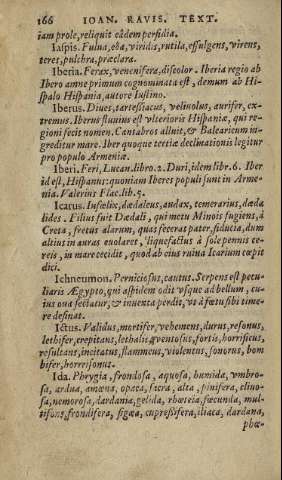 166 IOAN. RAVIS. TEXT.
iam prole, reliquit eâdem perfidia.
Iaspis. Fulua, eöa, viridis, rutila, effulgens, virens,
teres, pulchra, præclara.
Iberia. Ferax, venenifera, discolor. Iberia regio ab
Ibero amne primum cognominata est, demum ab Hi-
spalo Hispania, autore Iustino.
Iberus. Diues, tartessiacus, velinolus, aurifer, ex-
tremus. Iberus fluuius est vlterioris Hispaniæ, qui re-
gioni fecit nomen. Cantabros alluit, & Balearicum in-
greditur mare. Iber quoque tertiæ declinationis legitur
pro populo Armeniæ.
Iberi. Feri, Lucan. libro. 2. Duri, idem libr. 6. Iber
id est, Hispanus: quoniam Iberes populi sunt in Arme-
nia. Valerius Flac. lib. 5.
Icarus. Infœlix, dædaleus, audax, temerarius, dæda
lides. Filius fuit Dædali, qui metu Minois fugiens, à
Creta, fretus alarum, quas fecerat pater, fiducia, dum
altius in auras euolaret, liquefactus à sole pennis ce-
reis, in mare cecidit, quod ab eius ruina Icarium cœpit
dici.
Ichneumon. Perniciosus, cautus. Serpens est pecu-
liaris Ægypto, qui aspidem odit vsque ad bellum, cu-
ius oua sectatur, & inuenta perdit, vt à fœtu sibi time-
re desinat.
Ictus. Validus, mortifer, vehemens, durus, resonus,
lethifer, crepitans, lethalis, ventosus, fortis, horrificus,
resultans, incitatus, flammeus, violentus, sonorus, bom
bifer, horrisonus.
Ida. Phrygia, frondosa, aquosa, humida, vmbro-
sa, ardua, amœna, opaca, sacra, alta, pinifera, cliuo-
sa, nemorosa, dardania, gelida, rhœteia, fœcunda, mul-
tifons, frondifera, sigæa, cupressifera, iliaca, dardana,
phœ-